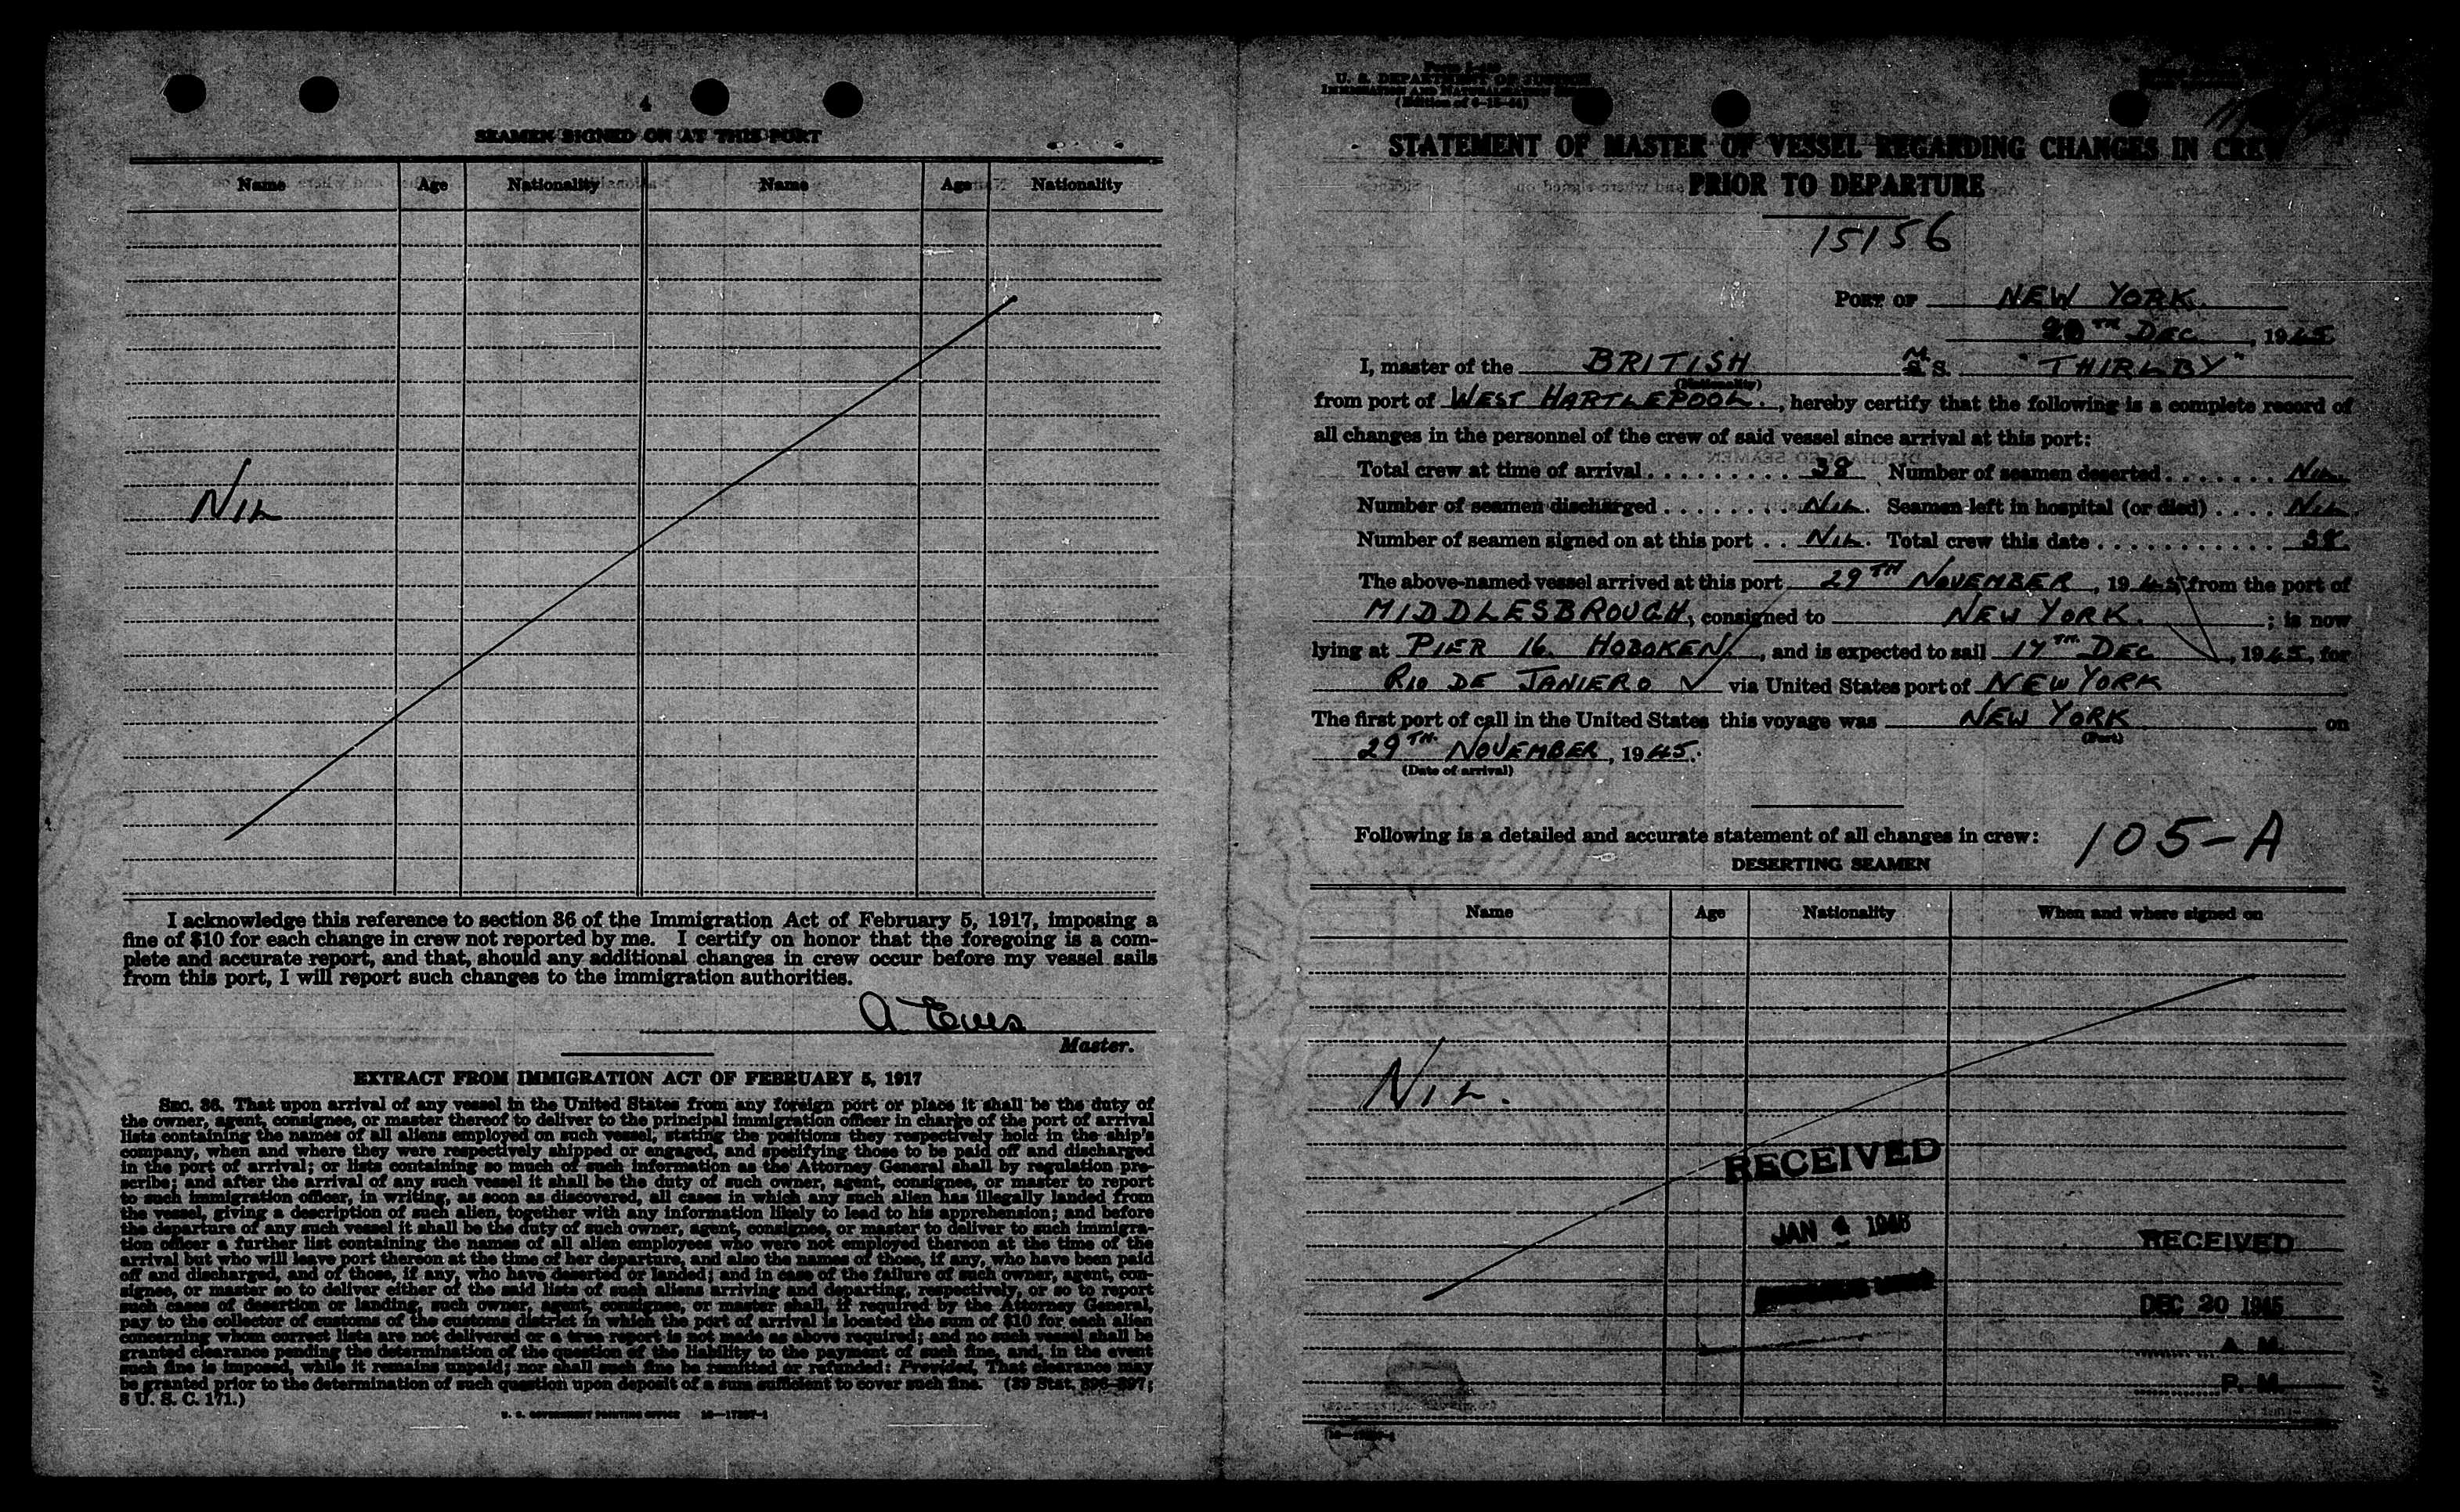 4
SEAMEN SIGNED ON AT THIS PORT
Name Age Nationality Name Age Nationality
NIL
I acknowledge this reference to section 36 of the Immigration Act of February 5, 1917, imposing a
fine of $10 for each change in crew not reported by me. I certify on honor that the foregoing is a com-
plete and accurate report, and that, should any additional changes in crew occur before my vessel sails
from this port, I will report such changes to the immigration authorities.
A.
Master.
EXTRACT FROM IMMIGRATION ACT OF FEBRUARY 5, 1917
SEC. 36. That upon arrival of any vessel in the United States from any foreign port or place it shall be the duty of
the owner, agent, consignee, or master thereof to deliver to the principal immigration officer in charge of the port of arrival
lists containing the names of all aliens employed on such vessel, stating the positions they respectively hold in the ship's
company, when and where they were respectively shipped or engaged, and specifying those to be paid off and discharged
in the port of arrival; or lists containing so much of such information as the Attorney General shall by regulation pre-
scribe; and after the arrival of any such vessel it shall be the duty of such owner, agent, consignee, or master to report
to such immigration officer, in writing, as soon as discovered, all cases in which any such alien has illegally landed from
the vessel, giving a description of such alien, together with any information likely to lead to his apprehension; and before
the departure of any such vessel it shall be the duty of such owner, agent, consignee, or master to deliver to such immigra-
tion officer a further list containing the names of all alien employees who were not employed thereon at the time of the
arrival but who will leave port thereon at the time of her departure, and also the names of those, if any, who have been paid
off and discharged, and of those, if any, who have deserted or landed; and in case of the failure of such owner, agent, con-
signee, or master so to deliver either of the said lists of such aliens arriving and departing, respectively, or so to report
such cases of desertion or landing, such owner, agent, consignee, or master shall, if required by the Attorney General,
pay to the collector of customs of the customs district in which the port of arrival is located the sum of $10 for each alien
concerning whom correct lists are not delivered or a true report is not made as above required; and no such vessel shall be
granted clearance pending the determination of the question of the liability to the payment of such fine, and, in the event
such fine is imposed, while it remains unpaid; nor shall such fine be remitted or refunded: Provided, That clearance may
be granted prior to the determination of such question upon deposit of a sum sufficient to cover such fine. (39 Stat. 896-897;
8 U. S. C. 171.)
U. S. GOVERNMENT PRINTING OFFICE 16—17327-1
U. S. DEPARTMENT OF JUSTICE
IMMIGRATION AND NATURALIZATION
(Edition of 6-15-44)
STATEMENT OF MASTER OF VESSEL REGARDING CHANGES IN CREW
PRIOR TO DEPARTURE
15156
PORT OF NEW YORK.
20TH DEC, 1945
I, master of the BRITISH M. S. "THIRLBY"
(Nationality)
from port of WEST HARTLEPOOL., hereby certify that the following is a complete record of
all changes in the personnel of the crew of said vessel since arrival at this port:
Total crew at time of arrival . . . . . . . . . 38 Number of seamen deserted . . . . . . . NIL.
Number of seamen discharged . . . . . . . NIL. Seamen left in hospital (or died) . . . . NIL.
Number of seamen signed on at this port . . NIL. Total crew this date . . . . . . . . . . . 38.
The above-named vessel arrived at this port 29TH NOVEMBER, 1945 from the port of
MIDDLESBROUGH, consigned to NEW YORK. ; is now
lying at PIER 16. HOBOKEN, and is expected to sail 17TH DEC, 1945, for
RIO DE JANIERO ✓ via United States port of NEW YORK
The first port of call in the United States this voyage was NEW YORK on
(Port)
29TH NOVEMBER, 1945.
(Date of arrival)
Following is a detailed and accurate statement of all changes in crew: 105-A
DESERTING SEAMEN
Name Age Nationality When and where signed on
NIL.
RECEIVED
JAN 4 1946
RECEIVED
DEC 20 1945
A. M.
P. M.